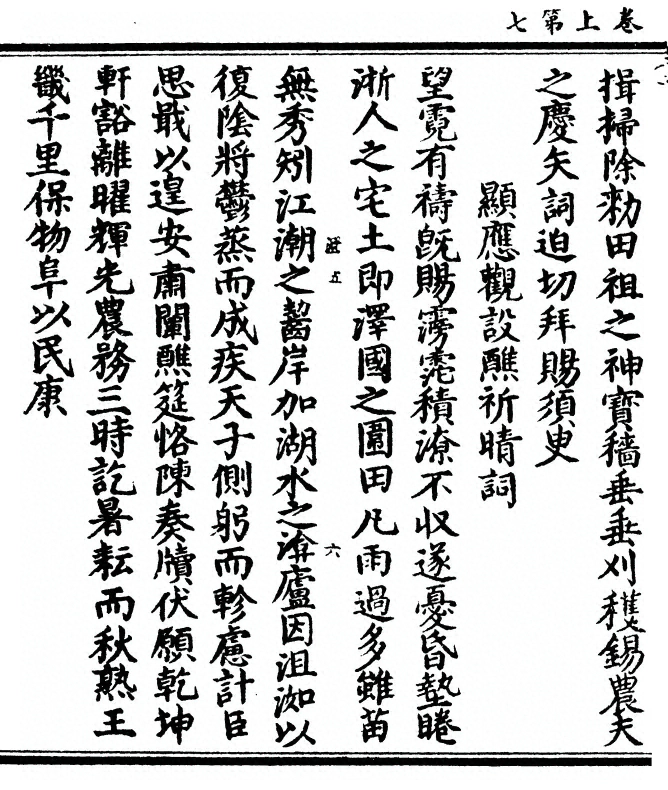 卷上第七
揖掃除勑田祖之神寶穡垂垂刈穫錫農夫
之慶矢詞迫切拜賜須臾
顯應觀設醮祈晴詞
望霓有禱旣賜霶霮積潦不収遂憂昏墊睠
浙人之宅土即澤國之圍田凡雨過多雖苗
無秀矧江潮之齧岸加湖水之渰廬因沮洳以
復陰將鬱蒸而成疾天子側躬而軫慮計臣
思戢以遑安肅闡醮筵恪陳奏牘伏願乾坤
軒豁離曜輝光農務三時訖暑耘而秋熟王
畿千里保物阜以民康
五
六